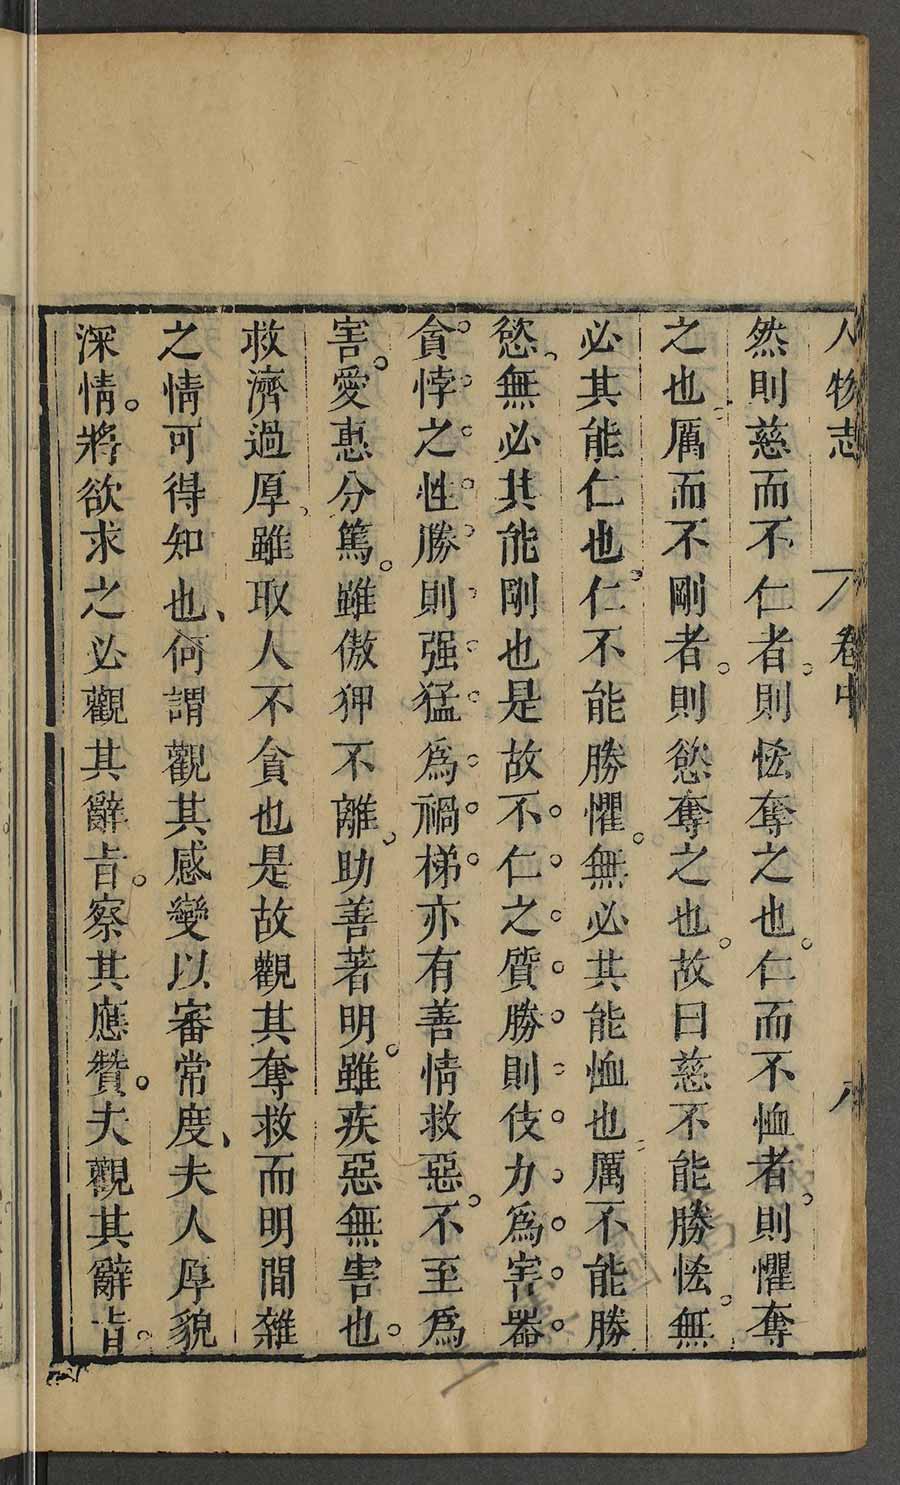 人物志 卷中 八
然則慈而不仁者。則恡奪之也。仁而不恤者。則懼奪
之也。厲而不剛者。則慾奪之也。故曰慈不能勝恡。無
必其能仁也。仁不能勝懼。無必其能恤也。厲不能勝
慾。無必其能剛也是故不仁之質勝則伎力爲害器。
貪悖之性勝則强猛爲禍梯。亦有善情救惡。不至爲
害。愛惠分篤。雖傲狎不離。助善著明。雖疾惡無害也。
救濟過厚、雖取人不貪也是故觀其奪救而明間雜
之情可得知也、何謂觀其感變以審常度、夫人厚貌
深情。將欲求之必觀其辭旨。察其應贊。夫觀其辭旨。